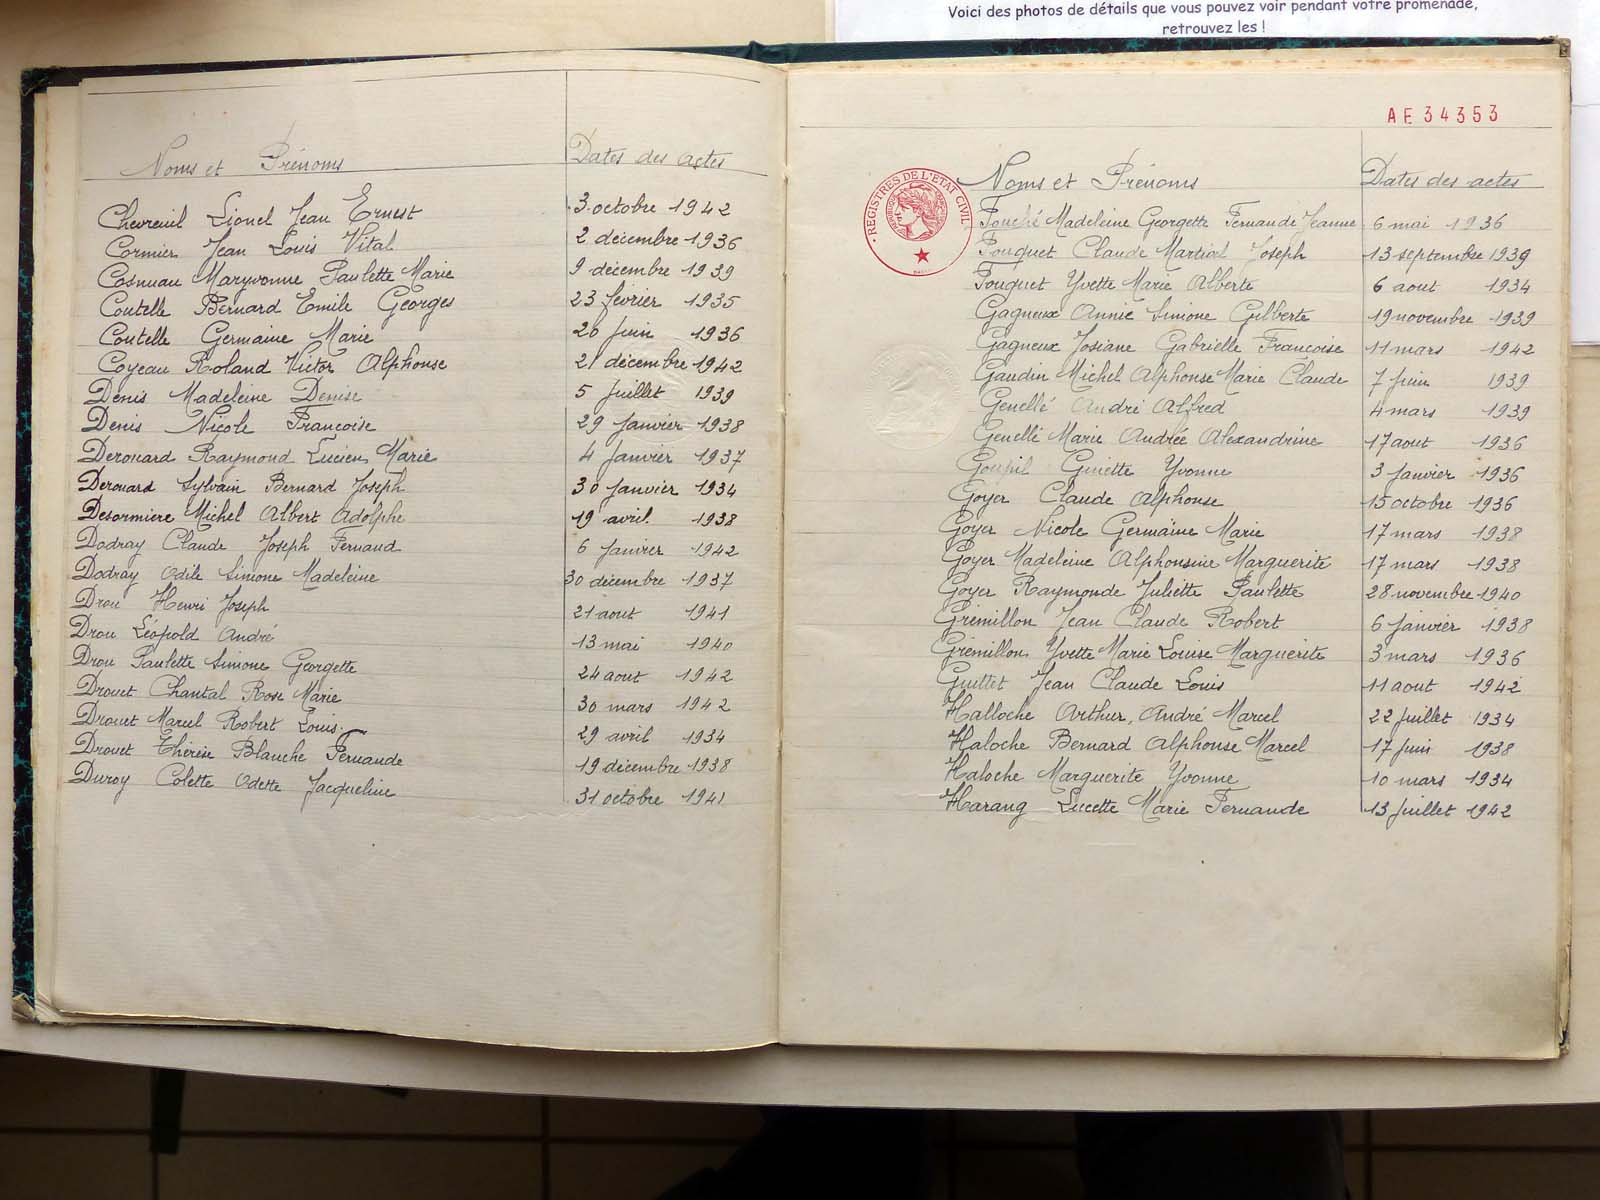 Voici des photos de détails que vous pouvez voir pendant votre promenade,
retrouvez les !
Noms et Prénoms Dates des actes
Chevreuil Lionel Jean Ernest 3 octobre 1942
Cormier Jean Louis Vital 2 décembre 1936
Cosnuau Maryvonne Paulette Marie 9 décembre 1939
Coutelle Bernard Emile Georges 23 février 1935
Coutelle Germaine Marie 20 juin 1936
Coyeau Roland Victor Alphonse 21 décembre 1942
Denis Madeleine Denise 5 juillet 1939
Denis Nicole Francoise 29 janvier 1938
Derouard Raymond Lucien Marie 4 janvier 1937
Derouard Sylvain Bernard Joseph 30 janvier 1934
Desormiere Michel Albert Adolphe 19 avril 1938
Dodray Claude Joseph Fernand 6 janvier 1942
Dodray Odile Simone Madeleine 30 décembre 1937
Drou Henri Joseph 21 aout 1941
Drou Léopold André 13 mai 1940
Drou Paulette Simone Georgette 24 aout 1942
Drouet Chantal Rose Marie 30 mars 1942
Drouet Marcel Robert Louis 29 avril 1934
Drouet Thérèse Blanche Fernande 19 décembre 1938
Duroy Colette Odette Jacqueline 31 octobre 1941
AE 34353
REGISTRES DE L'ETAT CIVIL
Noms et Prénoms Dates des actes
Fouché Madeleine Georgette Fernande Jeanne 6 mai 1936
Fouquet Claude Martial Joseph 13 septembre 1939
Fouquet Yvette Marie Alberte 6 aout 1934
Gagneux Annie Simone Gilberte 19 novembre 1939
Gagneux Josiane Gabrielle Francoise 11 mars 1942
Gaudin Michel Alphonse Marie Claude 7 juin 1939
Genellé André Alfred 4 mars 1939
Genellé Marie Andrée Alexandrine 17 aout 1936
Goupil Ginette Yvonne 3 janvier 1936
Goyer Claude Alphonse 15 octobre 1936
Goyer Nicole Germaine Marie 17 mars 1938
Goyer Madeleine Alphonsine Marguerite 17 mars 1938
Goyer Raymonde Juliette Paulette 28 novembre 1940
Grémillon Jean Claude Robert 6 janvier 1938
Grémillon Yvette Marie Louise Marguerite 3 mars 1936
Guittet Jean Claude Louis 11 aout 1942
Halloche Arthur, André Marcel 22 juillet 1934
Haloche Bernard Alphonse Marcel 17 juin 1938
Haloche Marguerite Yvonne 10 mars 1934
Harang Lucette Marie Fernande 13 juillet 1942